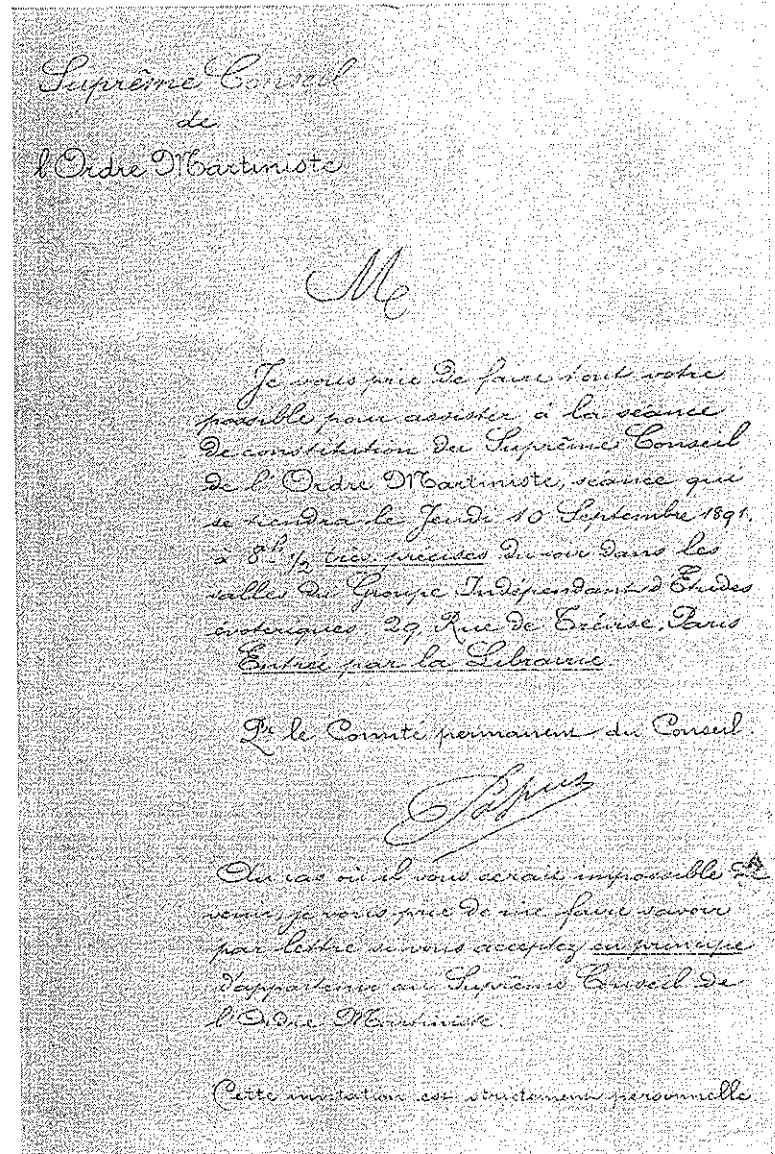 Suprême Conseil
de
l'Ordre Martiniste
M
Je vous prie de faire tout votre
possible pour assister à la séance
de constitution du Suprême Conseil
de l'Ordre Martiniste, séance qui
se tiendra le Jeudi 10 Septembre 1891.
à 8h 1/2 très précises du soir dans les
salles du Groupe Indépendant d'Études
ésoteriques, 29, Rue de Trévise, Paris
Entrée par la Librairie.
Pr le Comité permanent du Conseil.
Papus
Au cas où il vous serait impossible de
venir, je vous prie de me faire savoir
par lettre si vous acceptez en principe
d'appartenir au Suprême Conseil de
l'Ordre Martiniste.
Cette invitation est strictement personnelle